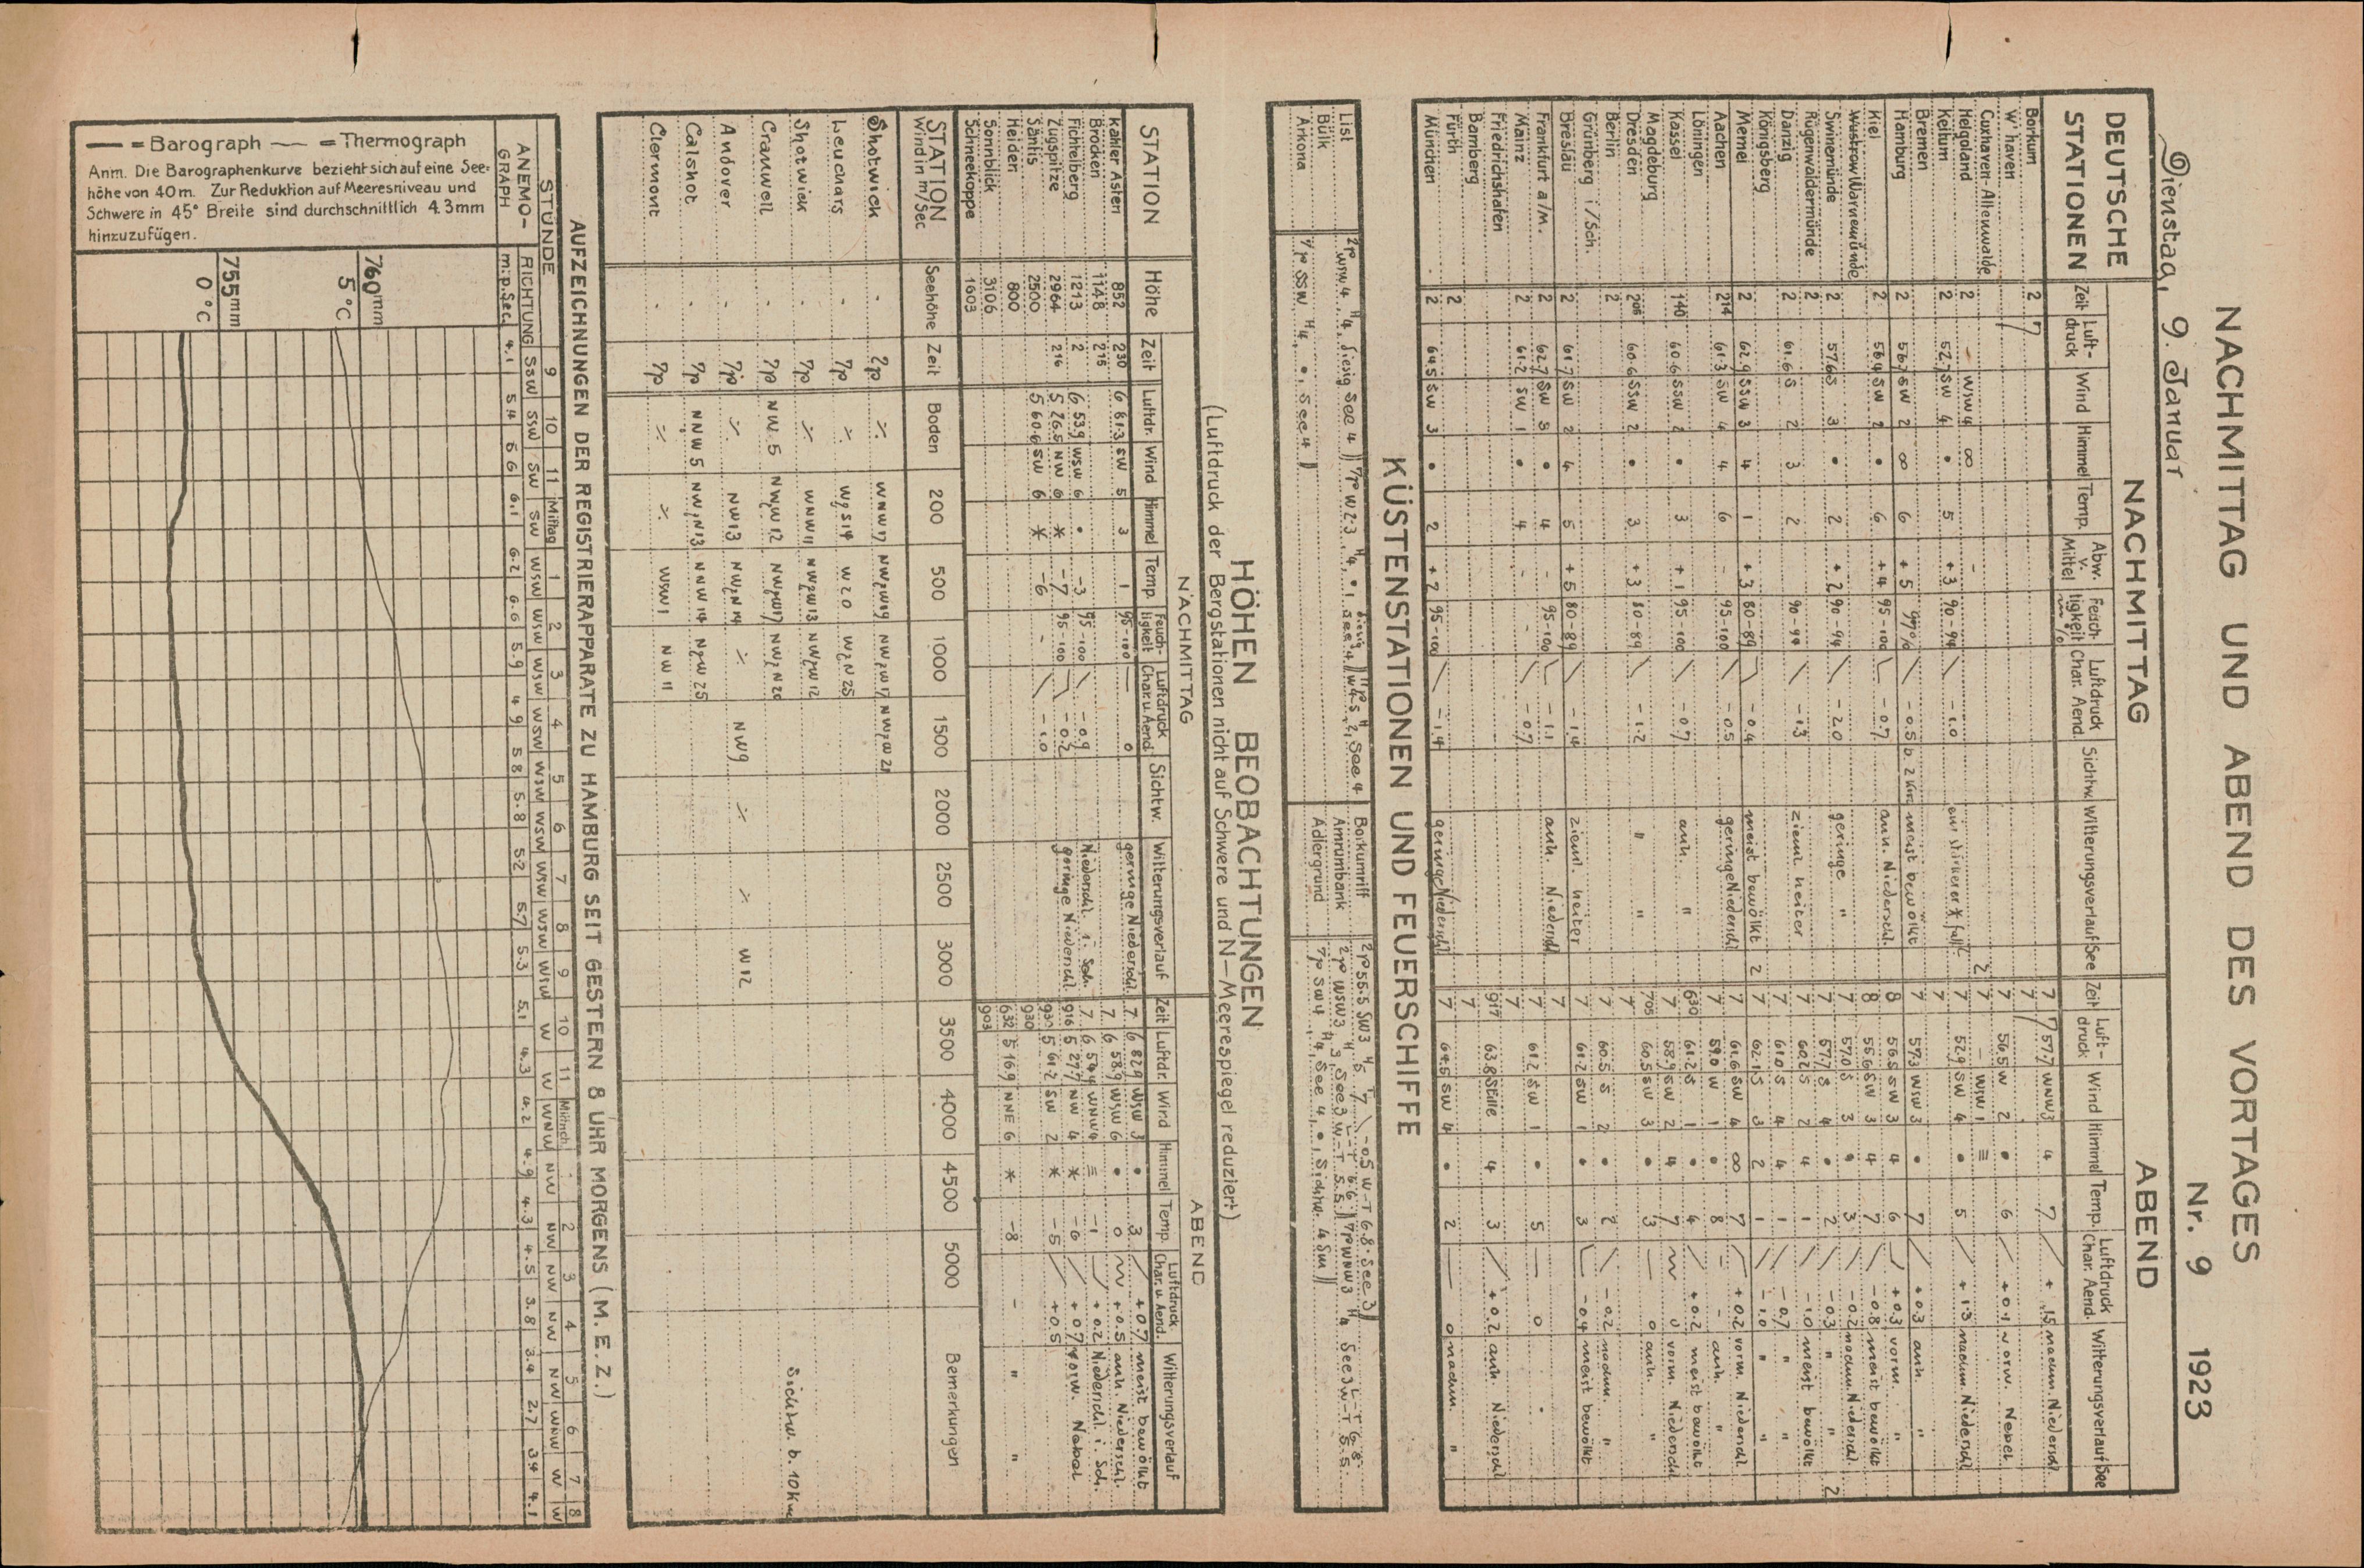 NACHMITTAG UND ABEND DES VORTAGES
Dienstag, 9. Januar Nr. 9 1923
DEUTSCHE STATIONEN NACHMITTAG ABEND
Zeit Luft-druck Wind Himmel Temp. Abw. v. Mittel Feuch-tigkeit % Luftdruck Char. Aend. Sichtw. Witterungsverlauf See Zeit Luft-druck Wind Himmel Temp. Luftdruck Char. Aend. Witterungsverlauf See
Borkum 2 7 57.7 WNW 3 4 7 nachm. Niederschl.
W'haven 7
Cuxhaven-Altenwalde 7 56.5 W 2 • 6 + 0.1 Nebel
Helgoland 2 - WSW 4 ∞ - 2 7 - WSW 1 ≡
Keitum 2 52.7 SW 4 • 5 + 3 90-94 - 1.0 7 52.9 SW 4 • 5 + 1.3 nachm. Niederschl.
Bremen 7
Hamburg 2 56.7 SW 2 ∞ 6 + 5 97% - 0.5 b. 2 Km meist bewölkt 7 57.3 WSW 3 • 7 + 0.3 anh. "
Kiel 2 56.4 SW 2 • 6 + 4 95-100 - 0.7 anh. Niederschl. 8 56.5 SW 3 4 6 + 0.3 vorm. "
Wustrow Warnemünde 8 55.6 SW 3 4 7 - 0.8 meist bewölkt
Swinemünde 2 57.6 S 3 • 2 + 2 90-94 - 2.0 geringe " 7 57.0 S 3 • 3 - 0.2 nachm. Niederschl.
Rügenwaldermünde 2 7 57.7 S 4 • 2 - 0.3 " " 2
Danzig 2 61.6 S 2 3 2 90-94 - 1.3 zieml. heiter 7 60.2 S 2 4 1 - 1.0 meist bewölkt
Königsberg 7 61.0 S 4 4 1 - 0.7 " "
Memel 2 62.9 SSW 3 4 1 + 3 80-89 - 0.4 meist bewölkt 2 7 62.1 S 3 2 1 - 1.0 " "
Aachen 214 61.3 SW 4 4 6 - 95-100 - 0.5 geringe Niederschl. 7 61.6 SW 4 ∞ 7 + 0.2 vorm. Niederschl.
Löningen 7 59.0 W 1 • 8 - - anh. "
Kassel 140 60.6 SSW 2 • 3 + 1 95-100 - 0.7 anh. " 630 61.2 S 1 • 4 + 0.2 meist bewölkt
Magdeburg 7 58.9 SW 2 4 7 0 vorm. Niederschl.
Dresden 206 60.6 SSW 2 • 3 + 3 80-89 - 1.2 " " 705 60.5 SW 3 • 3 0 anh. "
Berlin 2 7
Grünberg i/Sch. 7 60.5 S 2 • 2 - 0.2 nachm. "
Breslau 2 61.7 SW 2 4 5 + 5 80-89 - 1.4 zieml. heiter 7 61.2 SW 1 • 3 - 0.4 meist bewölkt
Frankfurt a/M. 2 62.7 SW 3 • 4 - 95-100 - 1.1 anh. Niederschl. 7
Mainz 2 61.2 SW 1 • 4 - - - 0.7 7 61.2 SW 1 • 5 0
Friedrichshafen 917 63.8 Stille 4 3 + 0.2 anh. Niederschl.
Bamberg 7
Fürth 2
München 2 64.5 SW 3 • 2 + 2 95-100 - 1.4 geringe Niederschl. 7 64.5 SW 4 • 2 0 nachm. "
KÜSTENSTATIONEN UND FEUERSCHIFFE
List 2p WNW 4, H 4, See 4
Bülk
Arkona 7p SSW, H 4, •, See 4
Borkumriff 2p 55.5 SW 3 - 0.5 W-T 6.8. See 3
Amrumbank 2p WSW 3 H 3, See 3 W-T 5.5. 7p WNW 3 H 4 See 3 W-T 5.5.
Adlergrund 7p SW 4 H 4, See 4, •, Sichtw. 4 Sm
HÖHEN BEOBACHTUNGEN
(Luftdruck der Bergstationen nicht auf Schwere und N-Meerespiegel reduziert)
NACHMITTAG ABEND
STATION Höhe Zeit Luftdr. Wind Himmel Temp. Feuch-tigkeit Luftdruck Char. u. Aend. Sichtw. Witterungsverlauf Zeit Luftdr. Wind Himmel Temp. Luftdruck Char. u. Aend. Witterungsverlauf
Kahler Asten 852 230 681.3 SW 5 3 1 95-100 0 geringe Niederschl. 7 682.9 WSW 3 • 3 + 0.7 meist bewölkt
Brocken 1148 215 7 658.9 WSW 6 • 0 + 0.5 anh. Niederschl.
Fichtelberg 1213 2 653.9 WSW 6 • -3 95-100 - 0.9 Niederschl. i. Sch. 7 WNW 4 ≡ -1 + 0.2 Niederschl. i. Sch.
Zugspitze 2964 216 526.5 NW 6 * -7 95-100 - 0.2 geringe Niederschl. 916 527.7 NW 4 * -6 + 0.7 vorw. Nebel
Säntis 2500 560.6 SW 6 * -6 - - 1.0 930 561.2 SW 2 * -5 + 0.5
Heiden 800 930
Sonnblick 3106 632 516.9 NNE 6 * -8 - " "
Schneekoppe 1603 903
STATION Wind in m/Sec Seehöhe Zeit Boden 200 500 1000 1500 2000 2500 3000 3500 4000 4500 5000 Bemerkungen
Shotwick - 2p ٪ WNW 17 NWzW 19 NWzW 17 NWzW 21
Leuchars - 7p ٪ WzS 14 W 20 WzN 25
Shotwick - 7p ٪ WNW 11 NWzW 13 NWzW 12 Sichtw. b. 10 Km
Cranwell - 7p NW 5 NWzW 12 NWzW 17 NWzN 20
Andover - 7p ٪ NW 13 NWzN 14 ٪ NW 9 ٪ ٪ W 12
Calshot - 7p NNW 5 NWzN 13 NNW 14 NzW 25
Clermont - 7p ٪ ٪ WSW 1 NW 11
AUFZEICHNUNGEN DER REGISTRIERAPPARATE ZU HAMBURG SEIT GESTERN 8 UHR MORGENS (M. E. Z.)
STUNDE 9 10 11 Mittag 1 2 3 4 5 6 7 8 9 10 11 Mittnch. 2 3 4 5 6 7 8
ANEMO-GRAPH RICHTUNG SSW SSW SW SW WSW WSW WSW WSW WSW WSW WSW WSW WSW W W WNW NW NW NW NW NW WNW W W
m.p.Sec. 4.1 5.4 6.6 6.1 6.2 6.6 5.9 4.9 5.8 5.8 5.2 5.7 5.3 5.1 4.3 4.2 4.9 4.3 4.5 3.8 3.4 2.7 3.4 4.1
= Barograph = Thermograph
Anm. Die Barographenkurve bezieht sich auf eine See-
höhe von 40 m. Zur Reduktion auf Meeresniveau und
Schwere in 45° Breite sind durchschnittlich 4.3 mm
hinzuzufügen.
760 mm
5 °C
755 mm
0 °C